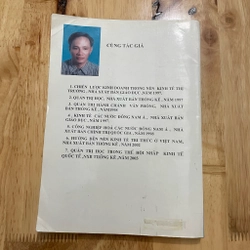 CÙNG TÁC GIẢ
1. CHIẾN LƯỢC KINH DOANH TRONG NỀN KINH TẾ THỊ
TRƯỜNG, NHÀ XUẤT BẢN GIÁO DỤC, NĂM 1997.
2. QUẢN TRỊ HỌC, NHÀ XUẤT BẢN THỐNG KÊ, NĂM 1997
3. QUẢN TRỊ HÀNH CHÁNH VĂN PHÒNG, NHÀ XUẤT BẢN
THỐNG KÊ
4. KINH TẾ CÁC NƯỚC ĐÔNG NAM Á, NHÀ XUẤT BẢN
GIÁO DỤC, NĂM 1997.
5. CÔNG NGHIỆP HÓA CÁC NƯỚC ĐÔNG NAM Á, NHÀ
XUẤT BẢN CHÍNH TRỊ QUỐC GIA
6. HƯỚNG ĐẾN NỀN KINH TẾ TRI THỨC Ở VIỆT NAM,
NHÀ XUẤT BẢN THỐNG KÊ
7. QUẢN TRỊ HỌC TRONG THẾ HỘI NHẬP KINH TẾ
QUỐC TẾ, NXB THỐNG KÊ, NĂM 2003